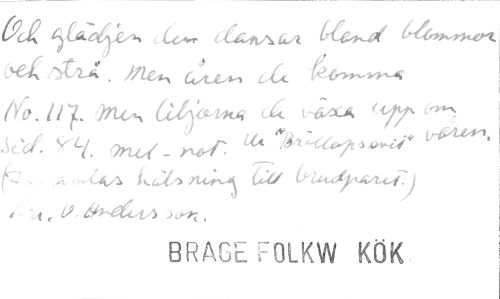 Och glädjen den dansar bland blommor
och strå. Men åren de komma
No. 117. Men liljorna de växa upp om
Sid. 84. mel-not. Ur "Bröllopsvis" våren.
hälsning till brudparet.)
O. Andersson.
BRAGE FOLKW KÖK